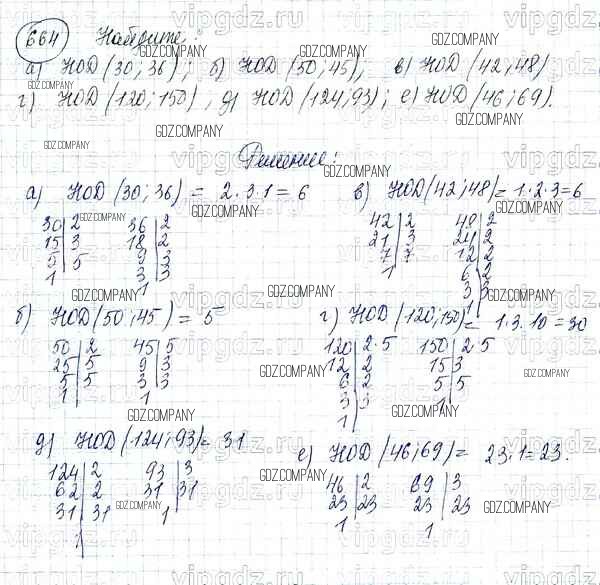 664 Найдите:
а) НОД (30; 36); б) НОД (50; 45); в) НОД (42; 48)
г) НОД (120; 150), д) НОД (124; 93); е) НОД (46; 69).
Решение:
а) НОД (30; 36) = 2·3·1 = 6
30 | 2   36 | 2
15 | 3   18 | 2
5 | 5   9 | 3
1   3 | 3
1
в) НОД (42; 48) = 1·2·3 = 6
42 | 2   48 | 2
21 | 3   24 | 2
7 | 7   12 | 2
1   6 | 2
3 | 3
1
б) НОД (50; 45) = 5
50 | 2   45 | 5
25 | 5   9 | 3
5 | 5   3 | 3
1   1
г) НОД (120; 150) = 1·3·10 = 30
120 | 2·5   150 | 2·5
12 | 2   15 | 3
6 | 2   5 | 5
3 | 3   1
1
д) НОД (124; 93) = 31
124 | 2   93 | 3
62 | 2   31 | 31
31 | 31   1
1
е) НОД (46; 69) = 23·1 = 23.
46 | 2   69 | 3
23 | 23   23 | 23
1   1
GDZ.COMPANY
vipgdz.ru